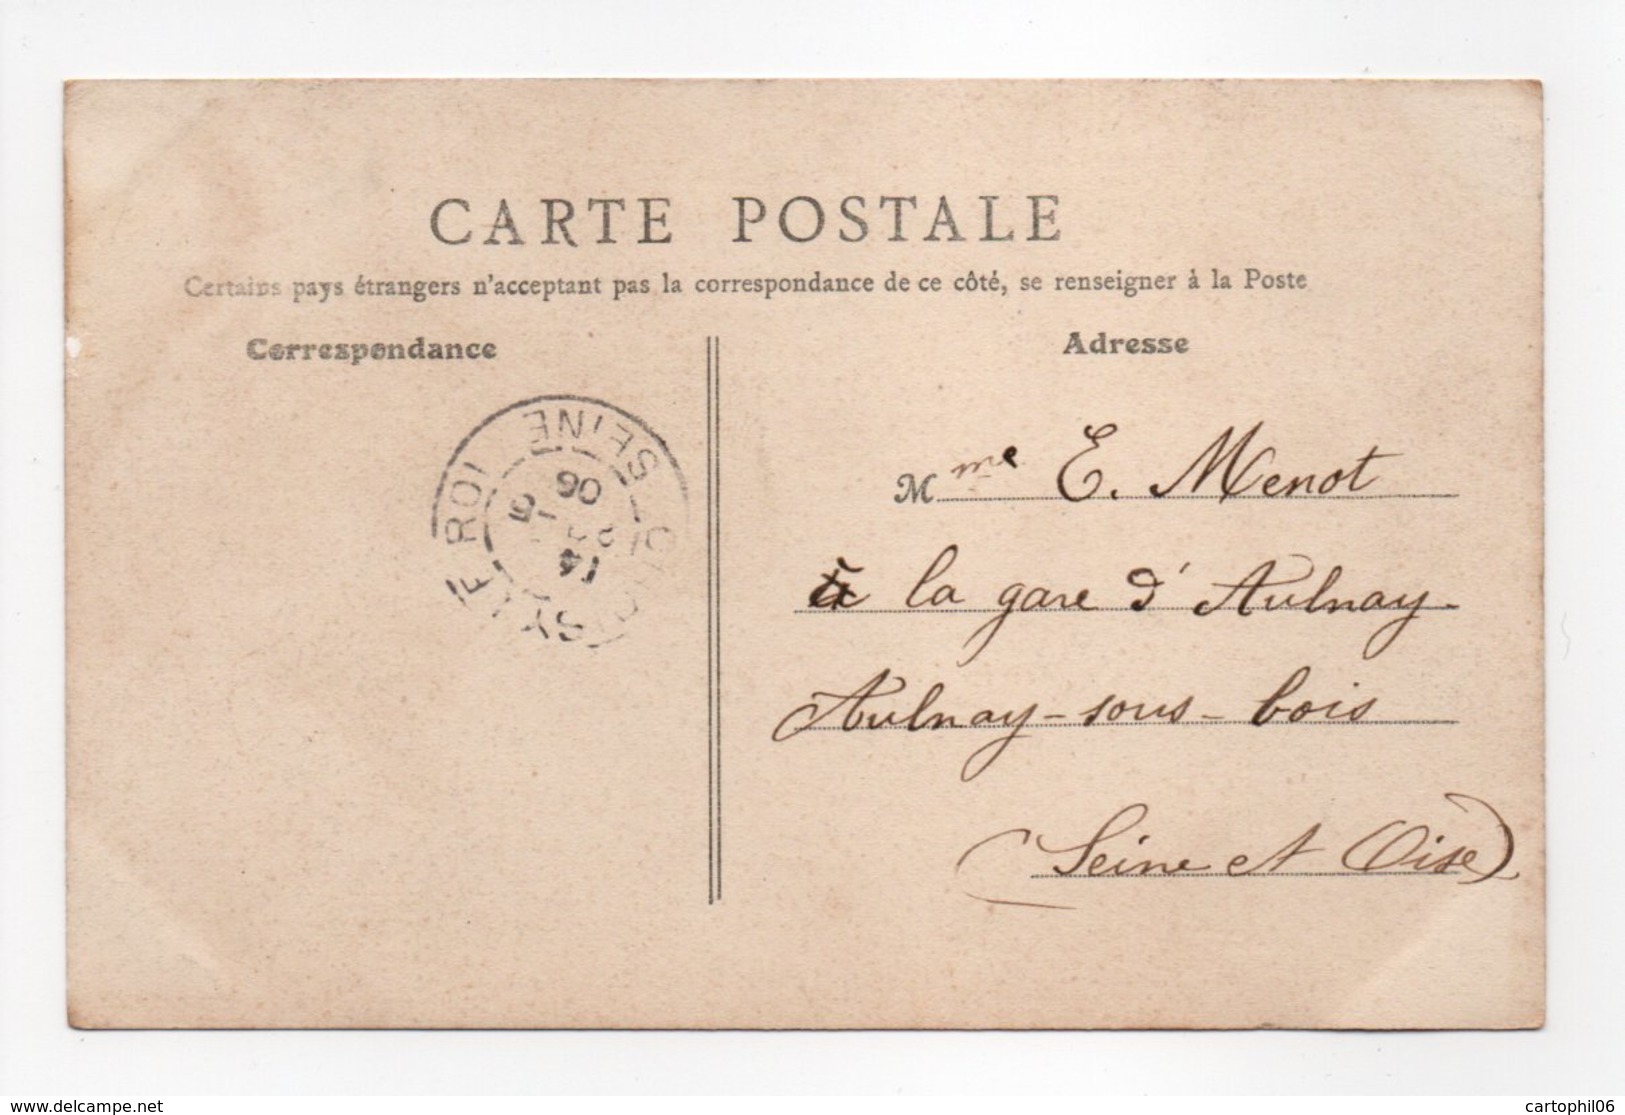 CARTE POSTALE
Certains pays étrangers n'acceptant pas la correspondance de ce côté, se renseigner à la Poste
Correspondance
Adresse
SEINE
ROI
14
06
Mme E. Menot
à la gare d'Aulnay
Aulnay-sous-bois
(Seine et Oise)
www.delcampe.net
cartophil06